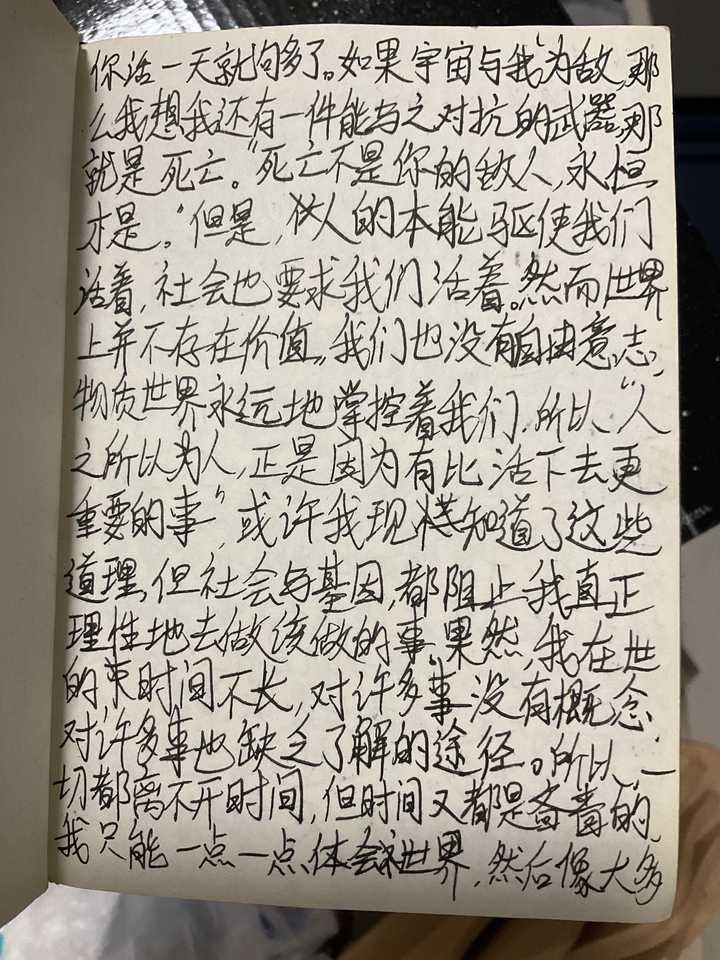 你活一天就够多了。如果宇宙与我为敌,那
么我想我还有一件能与之对抗的武器,那
就是死亡。“死亡不是你的敌人,永恒
才是。”但是,人的本能驱使我们
活着,社会也要求我们活着。然而世界
上并不存在价值,我们也没有自由意志,
物质世界永远地掌控着我们,所以,“人
之所以为人,正是因为有比活下去更
重要的事”,或许我现模知道了这些
道理,但社会与基因,都阻止我真正
理性地去做该做的事。果然,我在世
的时间不长,对许多事没有概念,
对许多事也缺乏了解的途径。所以,一
切都离不开时间,但时间又都是吝啬的,
我只能一点一点体会世界,然后像大多